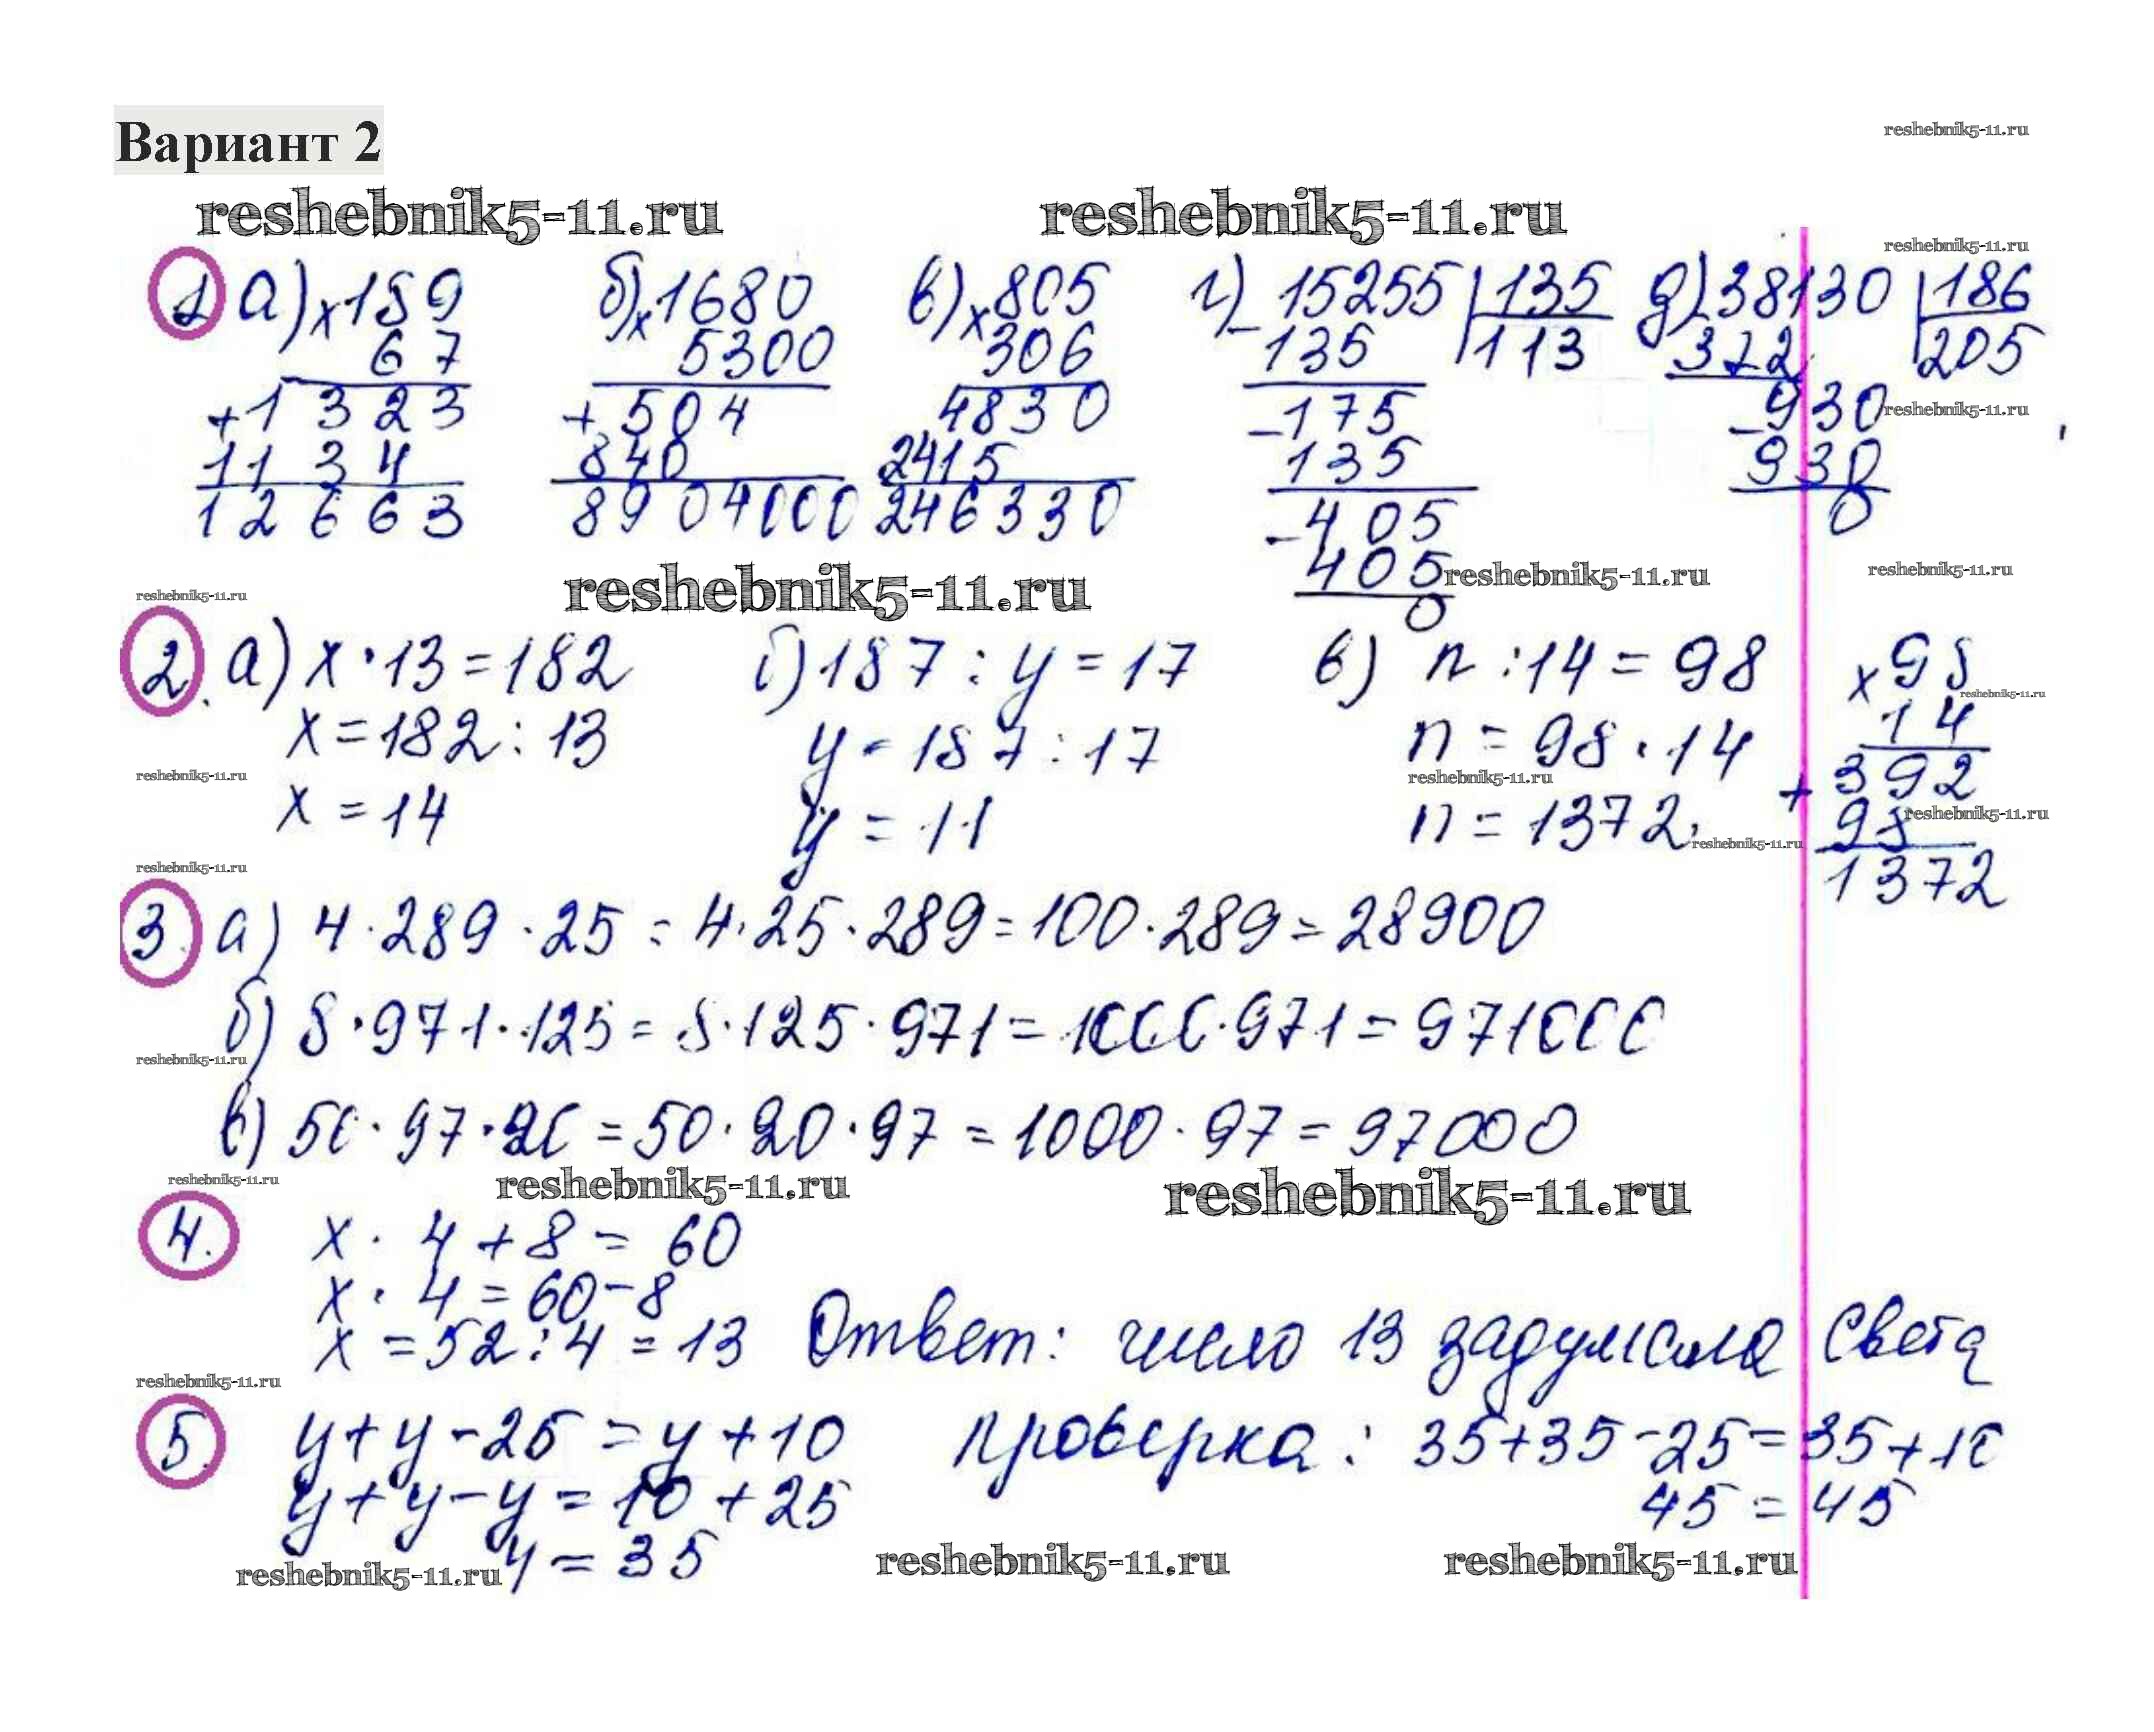 Вариант 2
reshebnik5-11.ru
reshebnik5-11.ru reshebnik5-11.ru
reshebnik5-11.ru
1 а) x 189 б) x 1680 в) x 805 г) 15255 | 135 д) 38130 | 186
67 5300 306 - 135 | 113 - 372 | 205
+ 1323 + 504 4830 - 175 - 930 reshebnik5-11.ru
1134 840 2415 135 930
12663 8904000 246330 - 405 0
405 reshebnik5-11.ru reshebnik5-11.ru
reshebnik5-11.ru reshebnik5-11.ru 0
2. а) x · 13 = 182 б) 187 : y = 17 в) n : 14 = 98 x 98
reshebnik5-11.ru
x = 182 : 13 y = 187 : 17 n = 98 · 14 14
reshebnik5-11.ru reshebnik5-11.ru + 392
x = 14 y = 11 n = 1372. 98 reshebnik5-11.ru
reshebnik5-11.ru reshebnik5-11.ru 1372
3. а) 4 · 289 · 25 = 4 · 25 · 289 = 100 · 289 = 28900
б) 8 · 971 · 125 = 8 · 125 · 971 = 1000 · 971 = 971000
reshebnik5-11.ru
в) 50 · 97 · 20 = 50 · 20 · 97 = 1000 · 97 = 97000
reshebnik5-11.ru reshebnik5-11.ru reshebnik5-11.ru
4. x · 4 + 8 = 60
x · 4 = 60 - 8
x = 52 : 4 = 13 Ответ: число 13 задумала Света
reshebnik5-11.ru
5. y + y - 25 = y + 10 проверка: 35 + 35 - 25 = 35 + 10
y + y - y = 10 + 25 45 = 45
y = 35
reshebnik5-11.ru reshebnik5-11.ru reshebnik5-11.ru